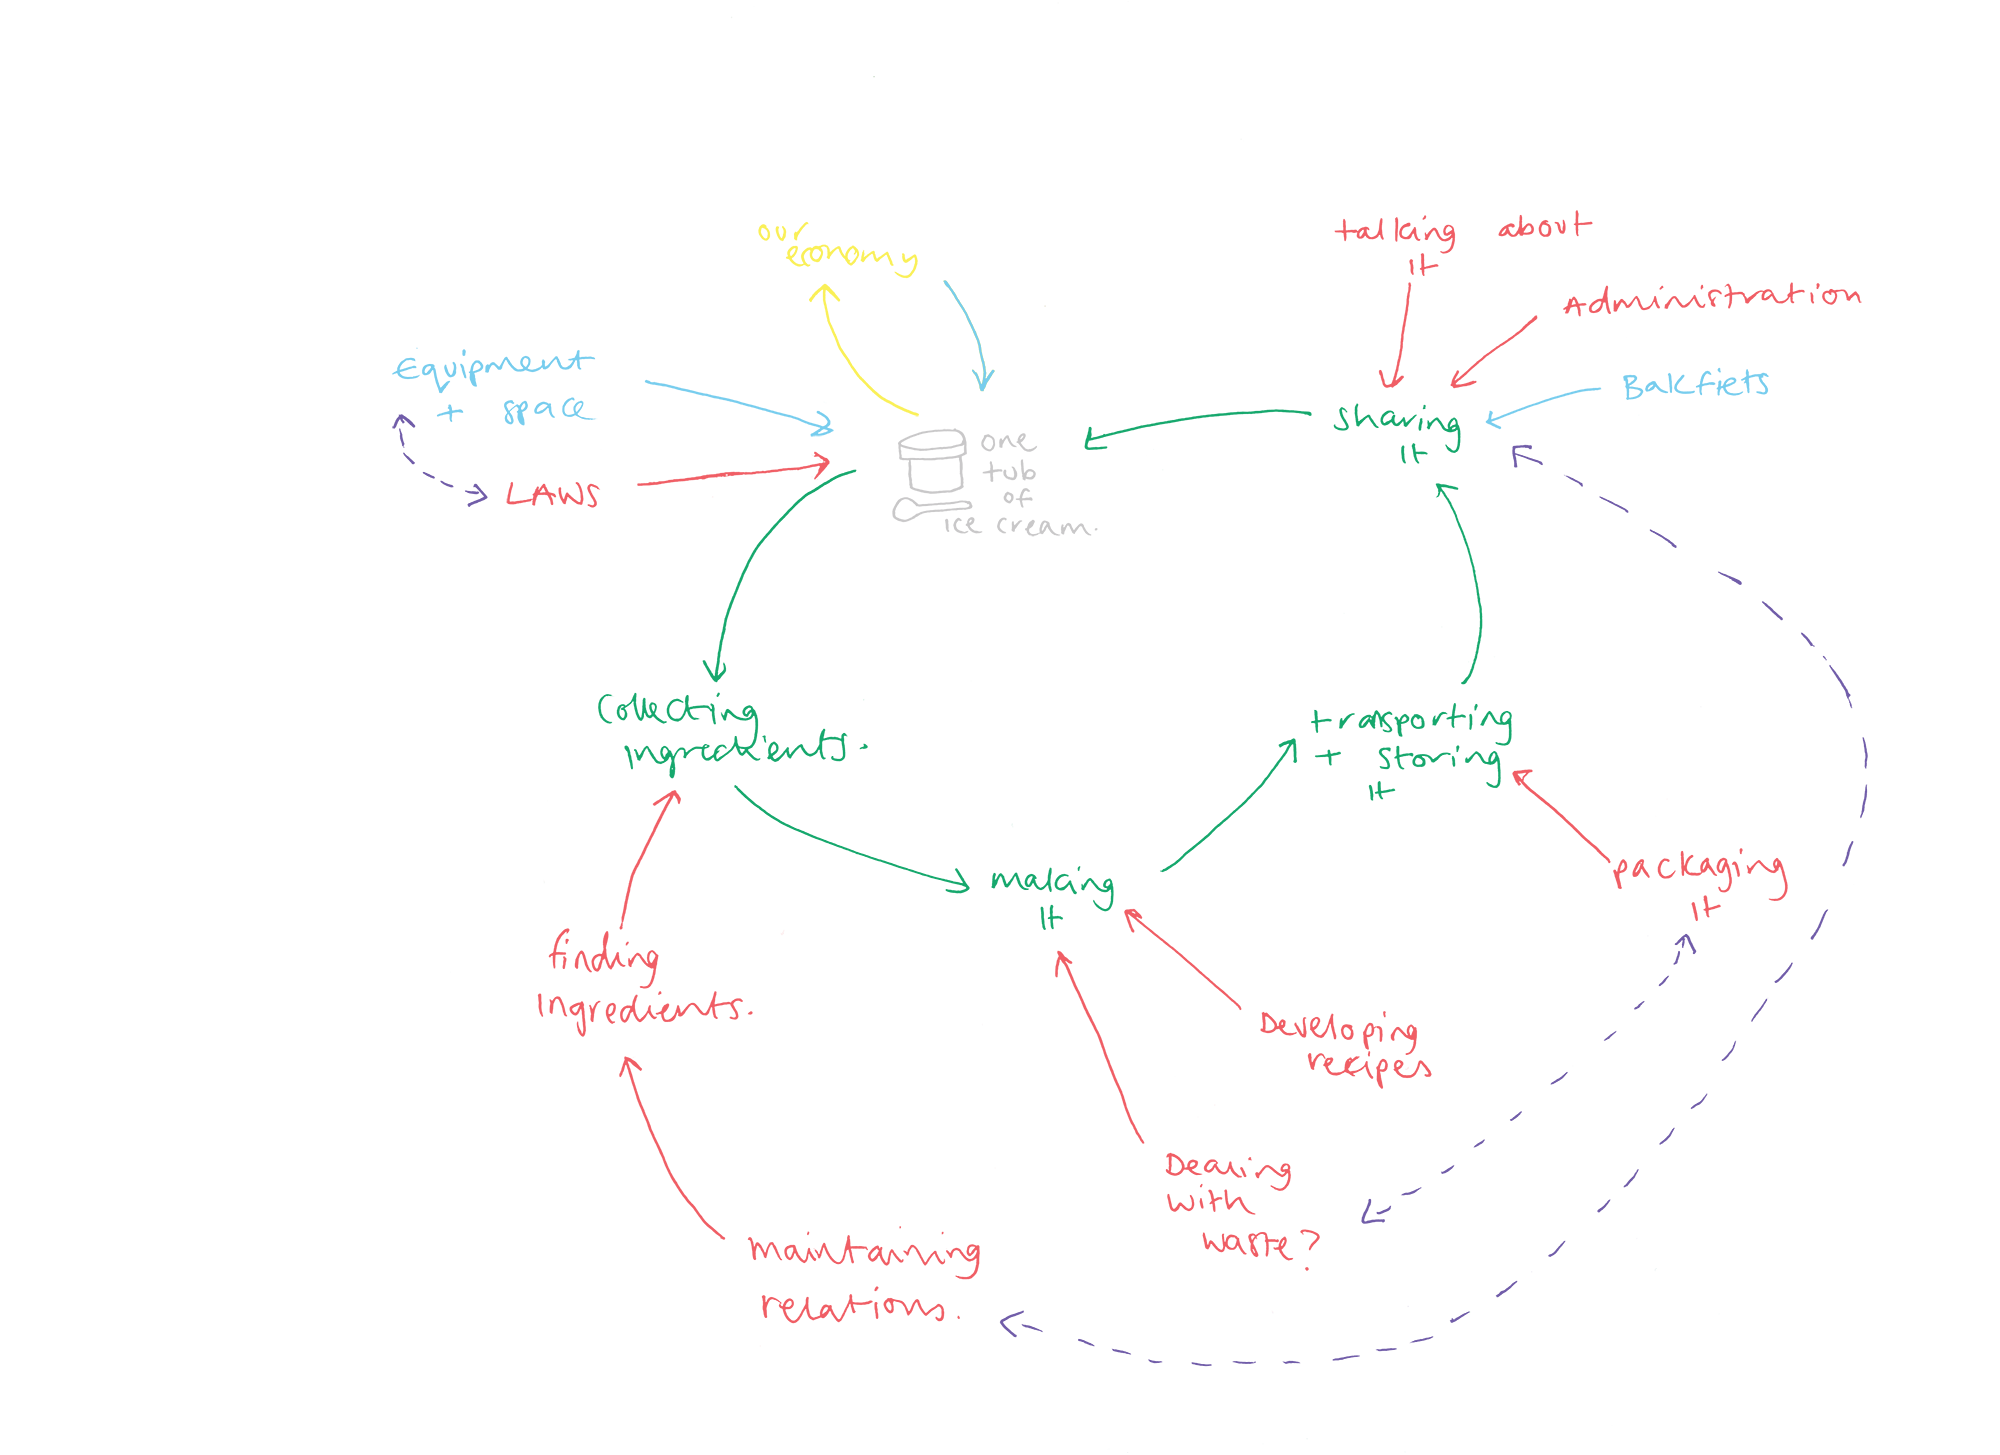 our
economy
talking about
It
Administration
Equipment
+ space
Bakfiets
LAWS
one
tub
of
ice cream.
sharing
It
Collecting
Ingredients.
transporting
+ storing
It
making
It
packaging
It
finding
Ingredients.
Developing
recipes
Dealing
with
waste?
maintaining
relations.